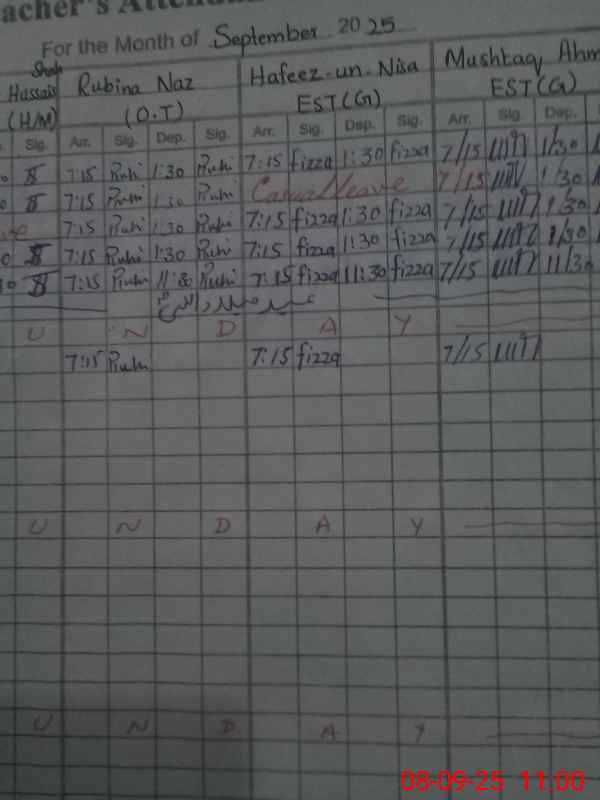 acher's Attenda
For the Month of September 2025
Shah Hussain Rubina Naz Hafeez-un-Nisa Mushtaq Ahm
(H/M) (O.T) EST(G) EST(G)
Sig. Arr. Sig. Dep. Sig. Arr. Sig. Dep. Sig. Arr. Sig. Dep.
7:15 Ruhi 1:30 Ruhi 7:15 fizza 1:30 fizza 7/15 1/30
7:15 Ruhi 1:30 Ruhi Casual leave 7/15 1/30
7:15 Ruhi 1:30 Ruhi 7:15 fizza 1:30 fizza 7/15 1/30
7:15 Ruhi 1:30 Ruhi 7:15 fizza 1:30 fizza 7/15 1/30
7:15 Ruhi 11:30 Ruhi 7:15 fizza 11:30 fizza 7/15 11/30
عید میلاد النبی
U N D A Y
7:15 Ruhi 7:15 fizza 7/15
U N D A Y
U N D A Y
08-09-25 11:00